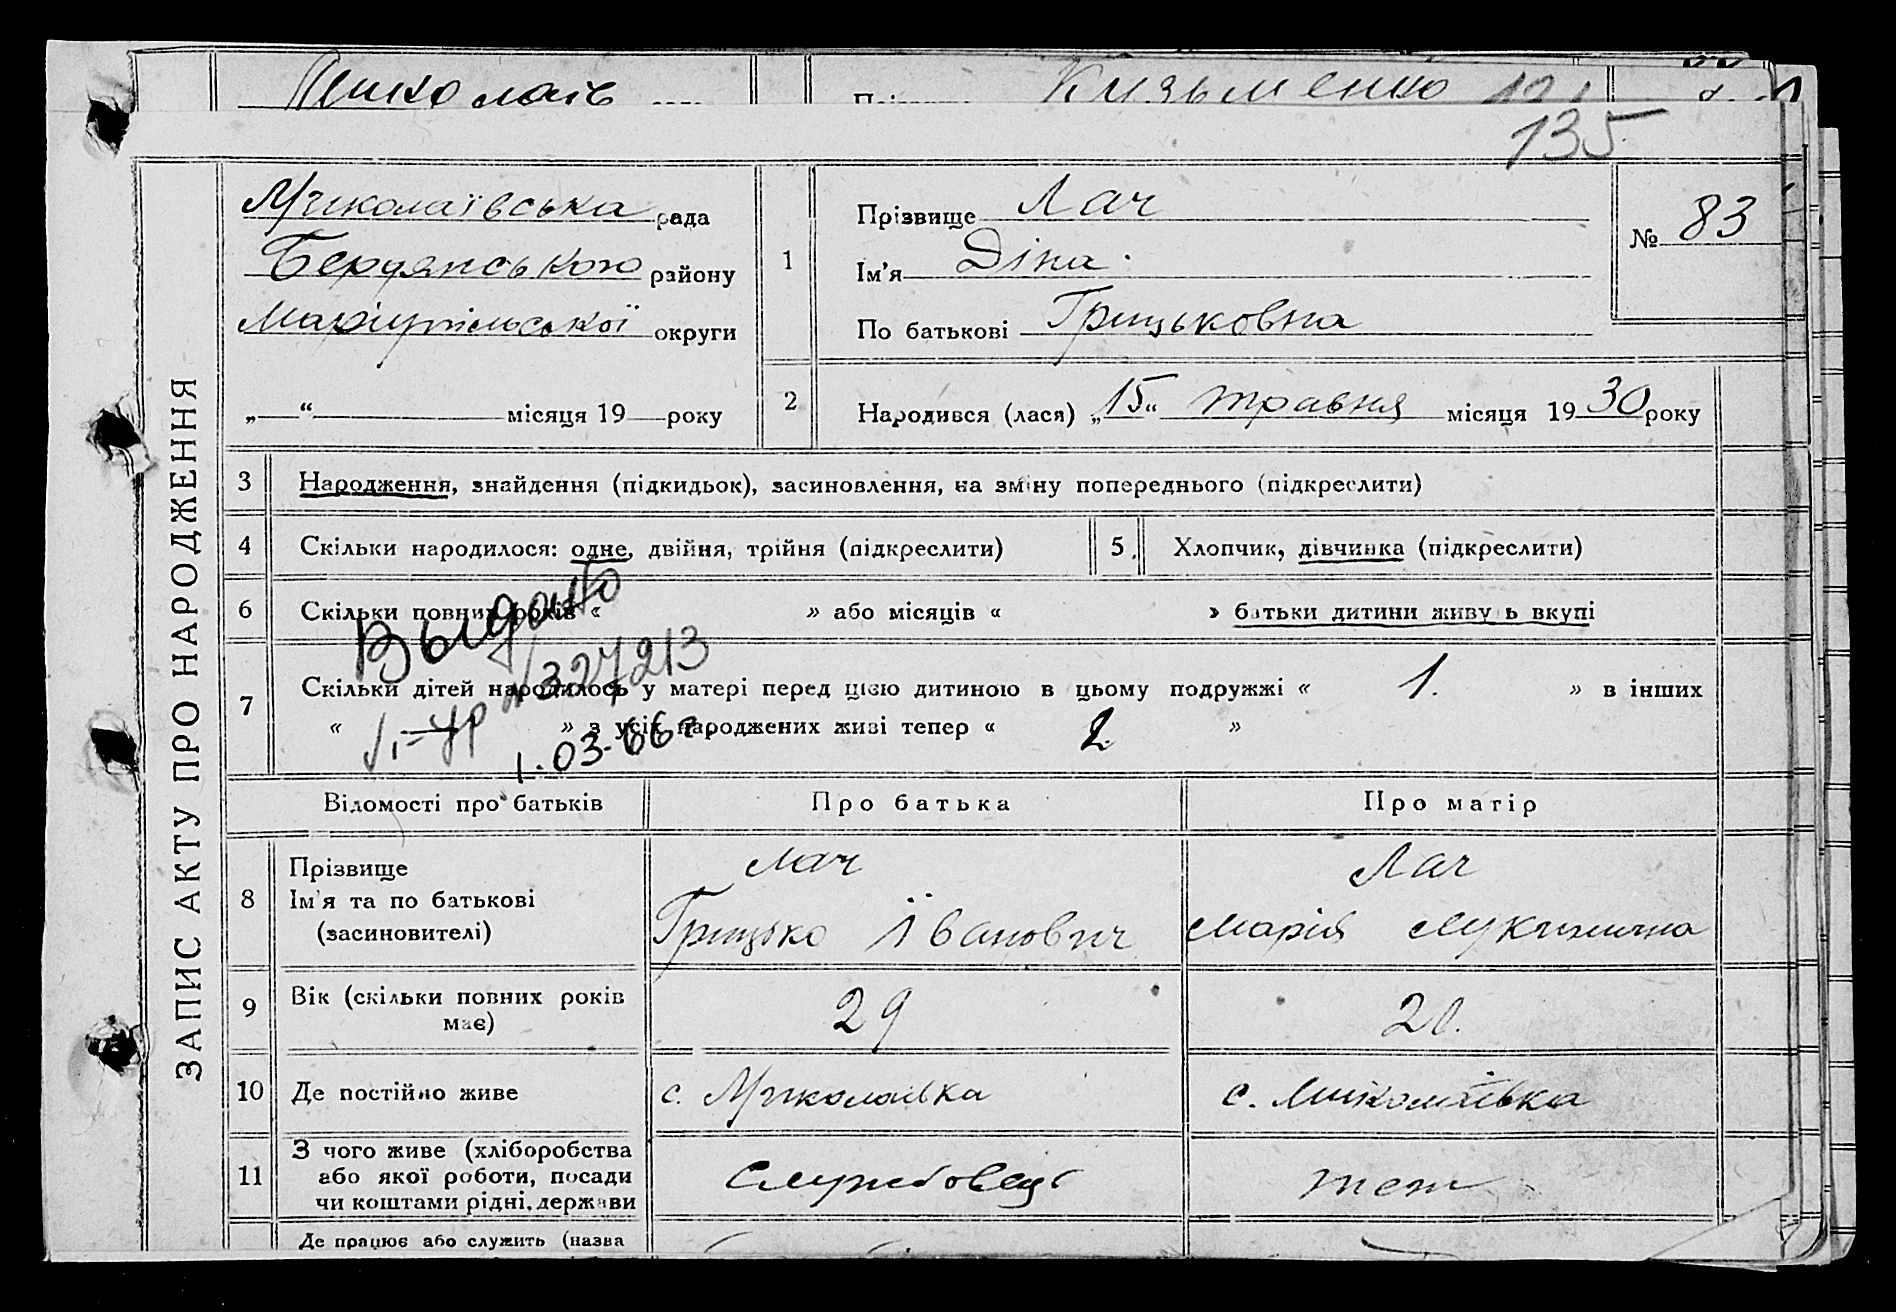 Миколаїв
Кузьменко
135
ЗАПИС АКТУ ПРО НАРОДЖЕННЯ
Миколаївська рада
Бердянського району
Маріупільської округи
„ “ місяця 19 року
1
Прізвище Лач
Ім’я Діна.
По батькові Грицьковна
№ 83
2
Народився (лася) „15“ травня місяця 1930 року
3 Народження, знайдення (підкидьок), засиновлення, на зміну попереднього (підкреслити)
4 Скільки народилося: одне, двійня, трійня (підкреслити)
5. Хлопчик, дівчинка (підкреслити)
6 Скільки повних років « » або місяців « » батьки дитини живуть вкупі
Выдано
№327213
1.03-66г.
7 Скільки дітей народилось у матері перед цією дитиною в цьому подружжі « 1. » в інших
« » з усіх народжених живі тепер « 2 »
Відомості про батьків
Про батька
Про матір
8
Прізвище
Ім’я та по батькові
(засиновителі)
Лач
Грицько Іванович
Лач
Марія
9
Вік (скільки повних років
має)
29
20.
10 Де постійно живе
с. Миколаївка
с. Миколаївка
11
З чого живе (хліборобства
або якої роботи, посади
чи коштами рідні, держави
Службовець
теж
Де працює або служить (назва